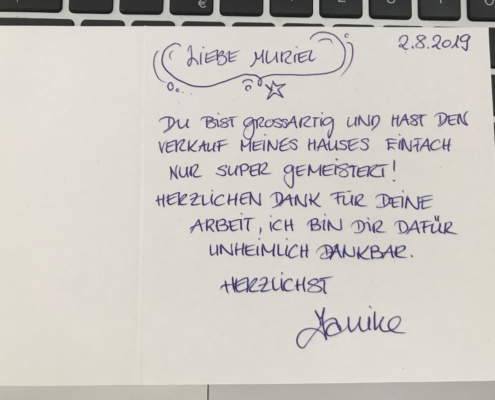 LIEBE MURIEL
2.8.2019
DU BIST GROSSARTIG UND HAST DEN
VERKAUF MEINES HAUSES EINFACH
NUR SUPER GEMEISTERT!
HERZLICHEN DANK FÜR DEINE
ARBEIT, ICH BIN DIR DAFÜR
UNHEIMLICH DANKBAR.
HERZLICHST